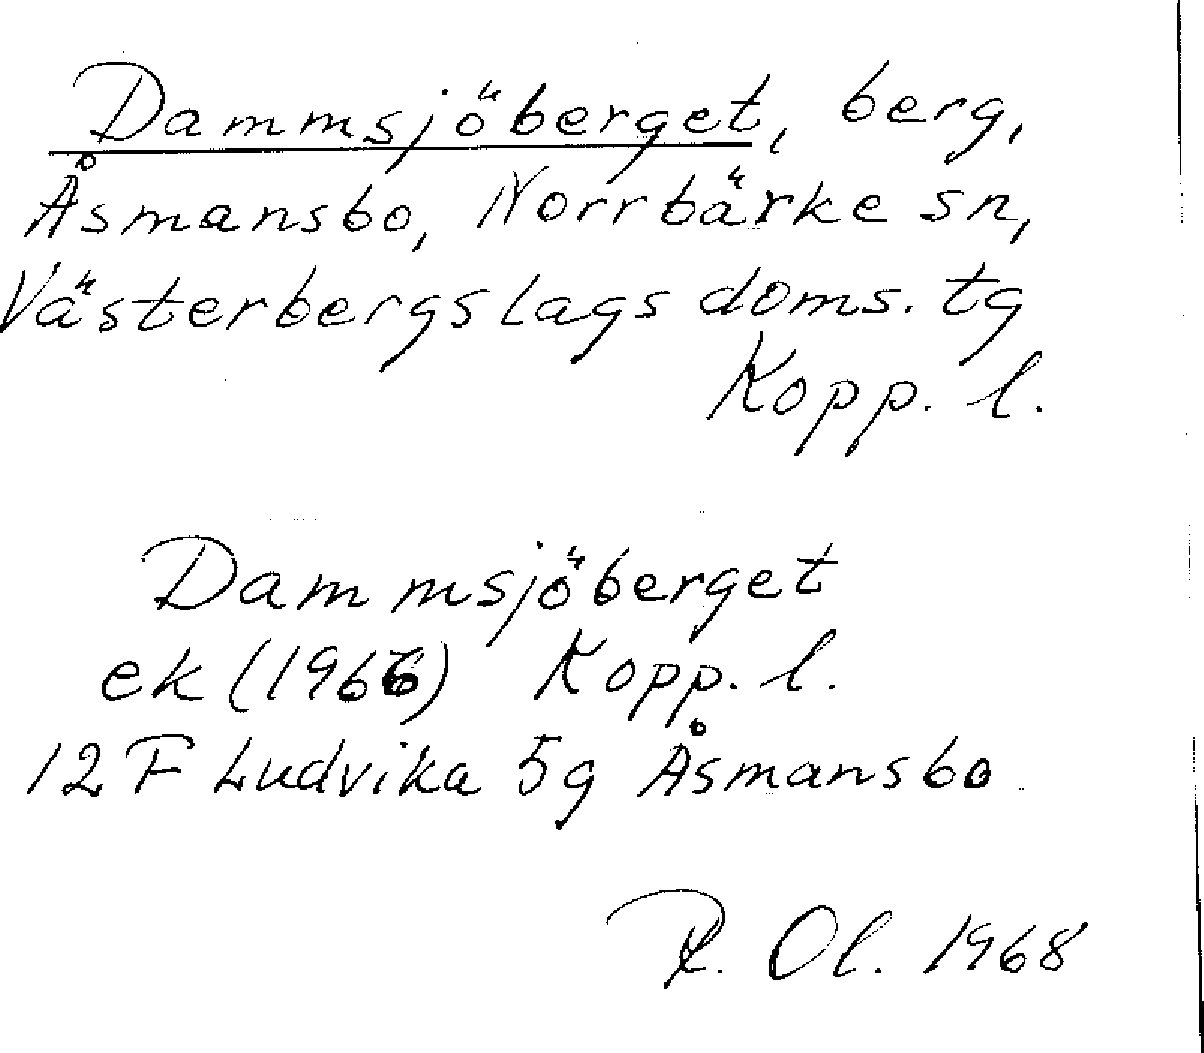 Dammsjöberget, berg,
Åsmansbo, Norrbärke sn,
Västerbergslags doms. tg
Kopp. l.
Dammsjöberget
ek (1966) Kopp. l.
12 F Ludvika 5g Åsmansbo
R. Ol. 1968